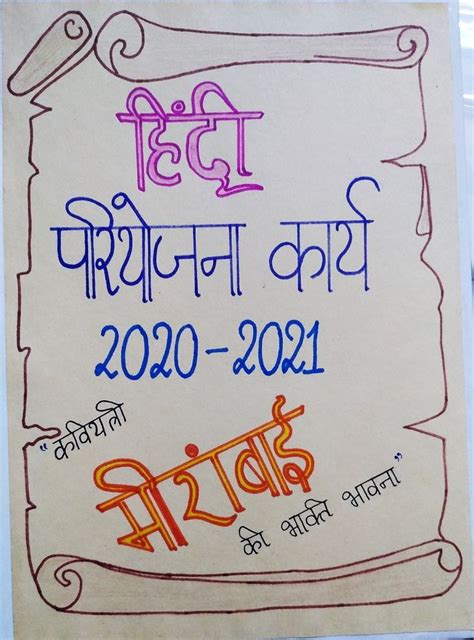 हिंदी
परियोजना कार्य
2020-2021
"कवियत्री
मीरांबाई
की भक्ति भावना"